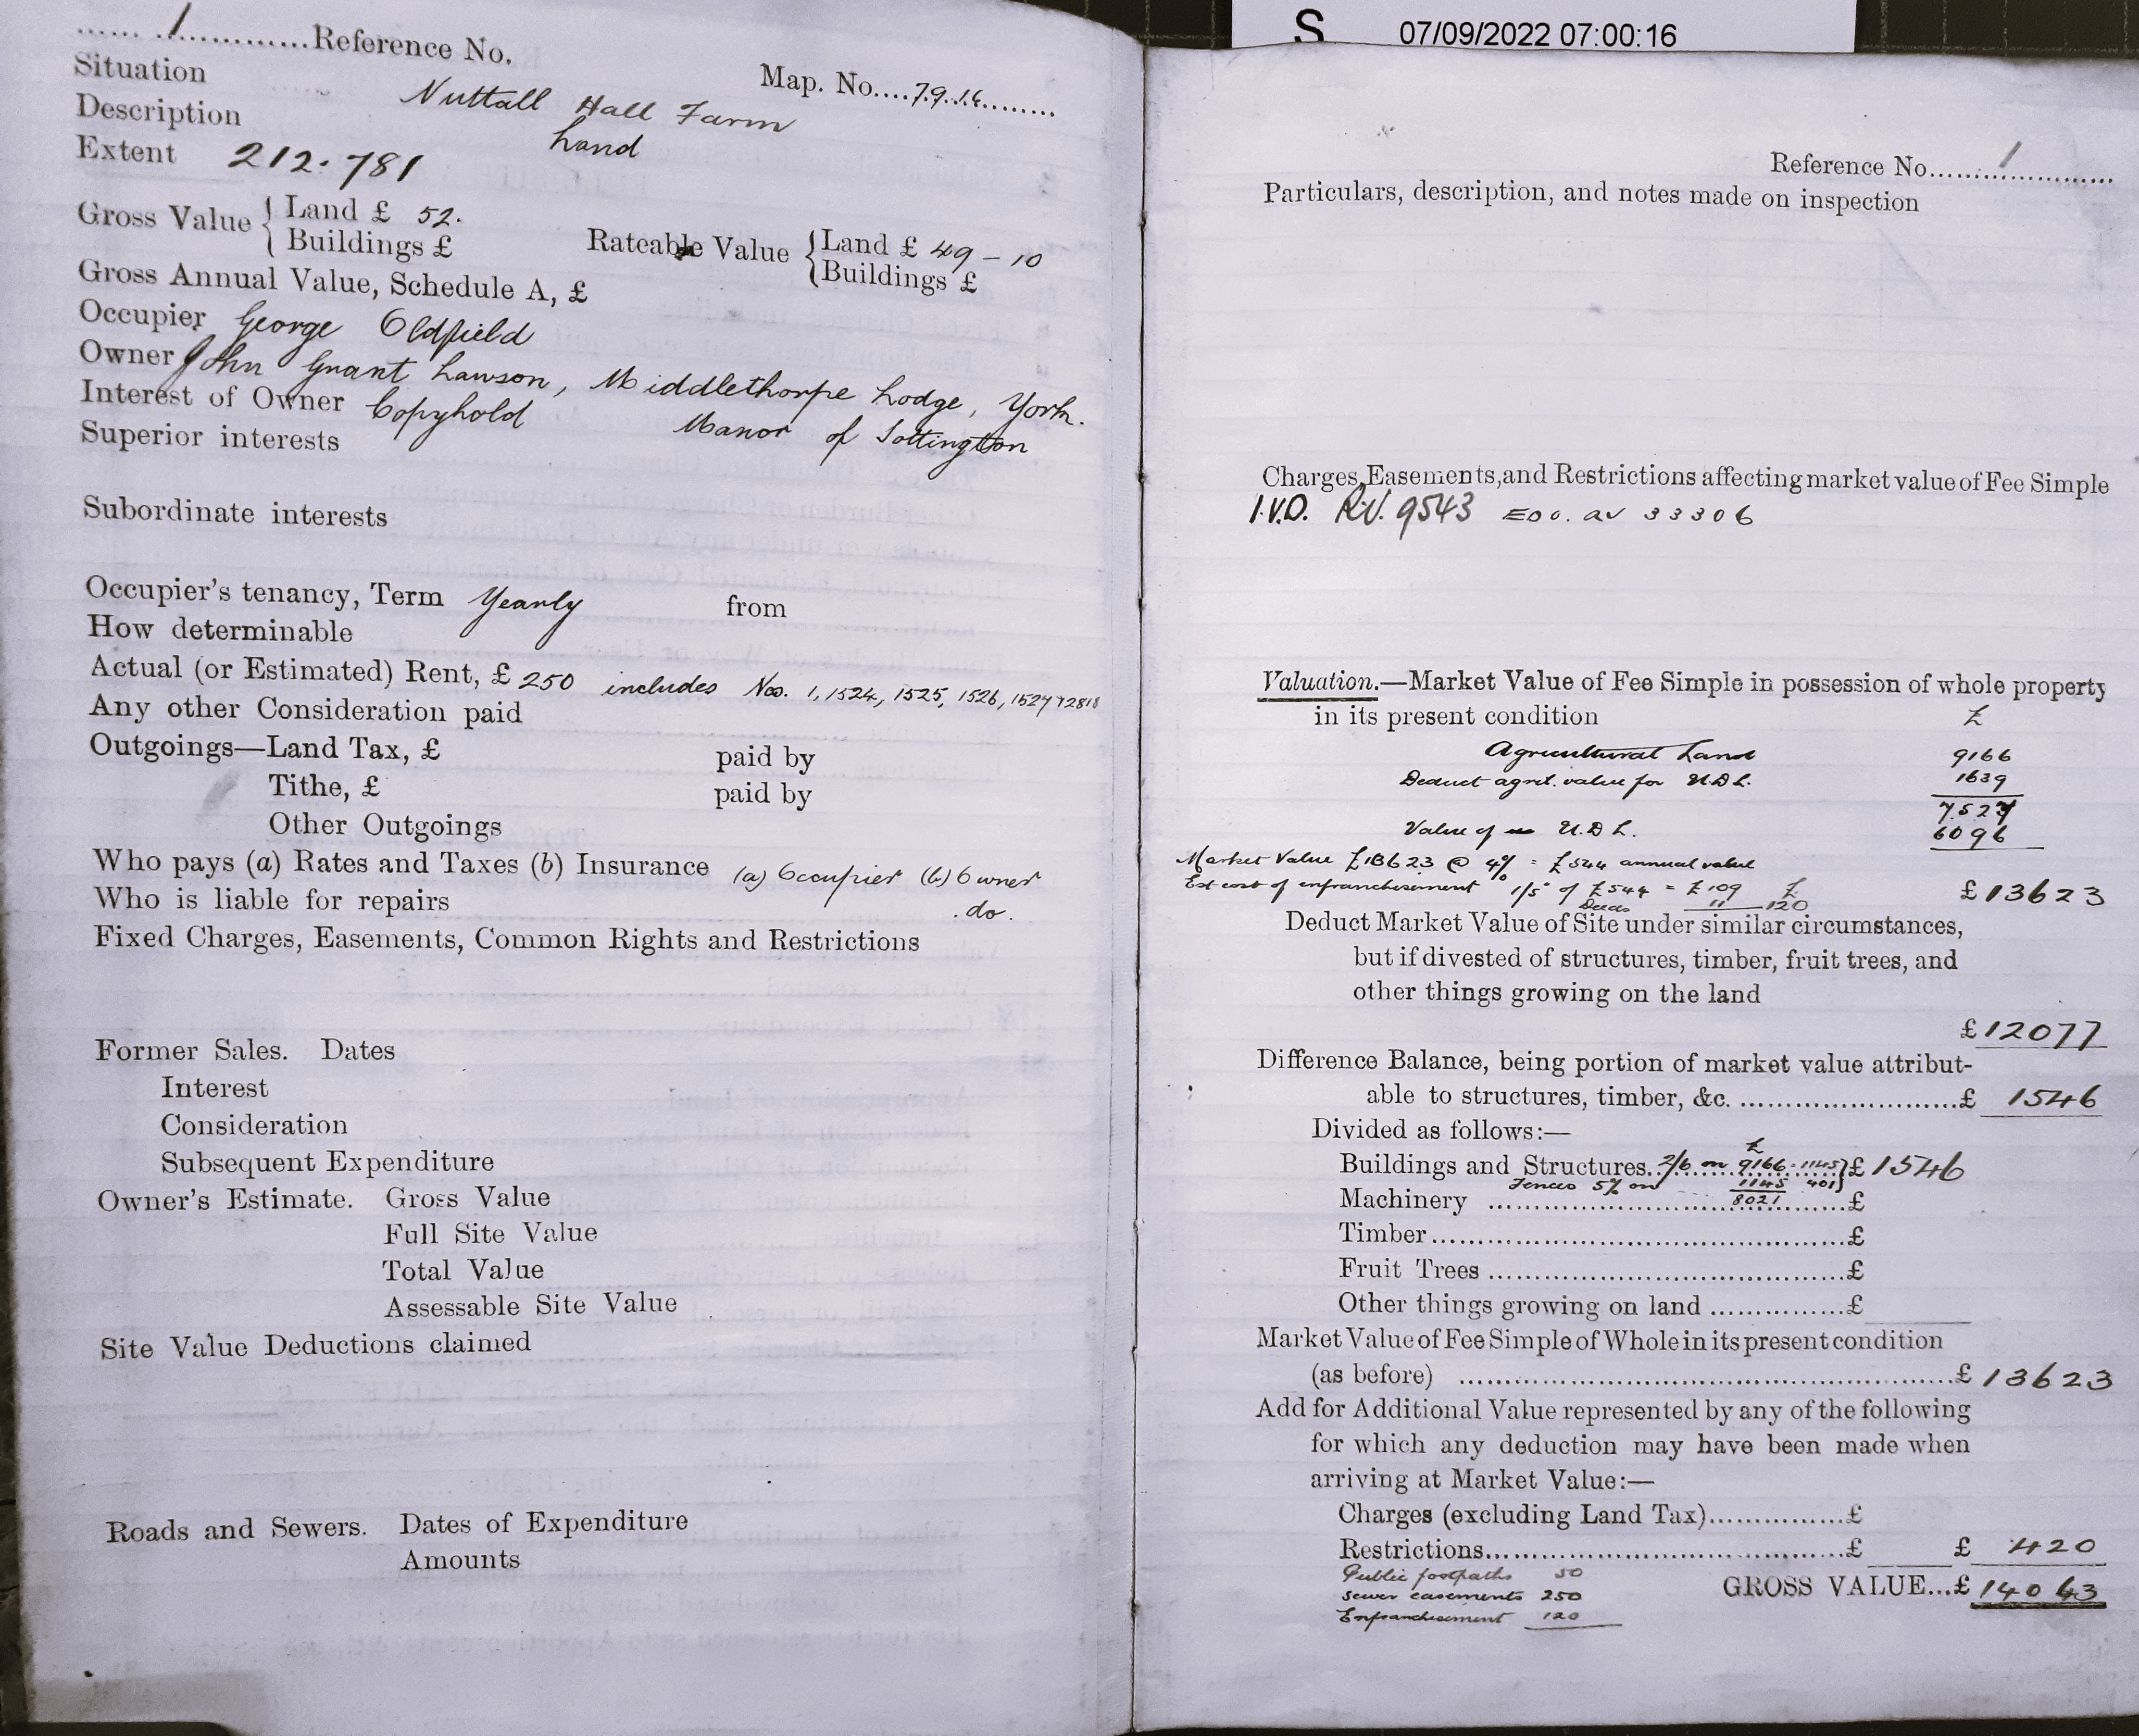 1 Reference No.
Map. No. 79.14
Situation Nuttall Hall Farm
Description Land
Extent 212.781
Gross Value { Land £ 52.
Buildings £
Rateable Value { Land £ 49 - 10
Buildings £
Gross Annual Value, Schedule A, £
Occupier George Oldfield
Owner John Grant Lawson, Middlethorpe Lodge, York.
Interest of Owner Copyhold Manor of Tottington
Superior interests
Subordinate interests
Occupier's tenancy, Term Yearly from
How determinable
Actual (or Estimated) Rent, £ 250 includes Nos. 1, 1524, 1525, 1526, 1527 + 2818
Any other Consideration paid
Outgoings—Land Tax, £ paid by
Tithe, £ paid by
Other Outgoings
Who pays (a) Rates and Taxes (b) Insurance (a) Occupier (b) Owner
Who is liable for repairs do.
Fixed Charges, Easements, Common Rights and Restrictions
Former Sales. Dates
Interest
Consideration
Subsequent Expenditure
Owner's Estimate. Gross Value
Full Site Value
Total Value
Assessable Site Value
Site Value Deductions claimed
Roads and Sewers. Dates of Expenditure
Amounts
S 07/09/2022 07:00:16
Reference No. 1
Particulars, description, and notes made on inspection
Charges, Easements, and Restrictions affecting market value of Fee Simple
I.V.D. R.V. 9543 33306
Valuation.—Market Value of Fee Simple in possession of whole property
in its present condition £
Agricultural Land 9166
Deduct agrel. value for U.D.L. 1639
7527
Value of U.D.L. 6096
Market Value £13623 @ 4% = £544 annual value
Est cost of enfranchisement 1/5 of £544 = £109 £
£13623
Deeds 11 120
Deduct Market Value of Site under similar circumstances,
but if divested of structures, timber, fruit trees, and
other things growing on the land
£12077
Difference Balance, being portion of market value attribut-
able to structures, timber, &c. £ 1546
Divided as follows:— £
Buildings and Structures 2/6 on 9166 = 1145 } £1546
Fences 5% on 1145 401
Machinery 8021 £
Timber £
Fruit Trees £
Other things growing on land £
Market Value of Fee Simple of Whole in its present condition
(as before) £13623
Add for Additional Value represented by any of the following
for which any deduction may have been made when
arriving at Market Value:—
Charges (excluding Land Tax) £
Restrictions £ £ 420
Public footpaths 50
GROSS VALUE...£14043
Sewer easements 250
Enfranchisement 120